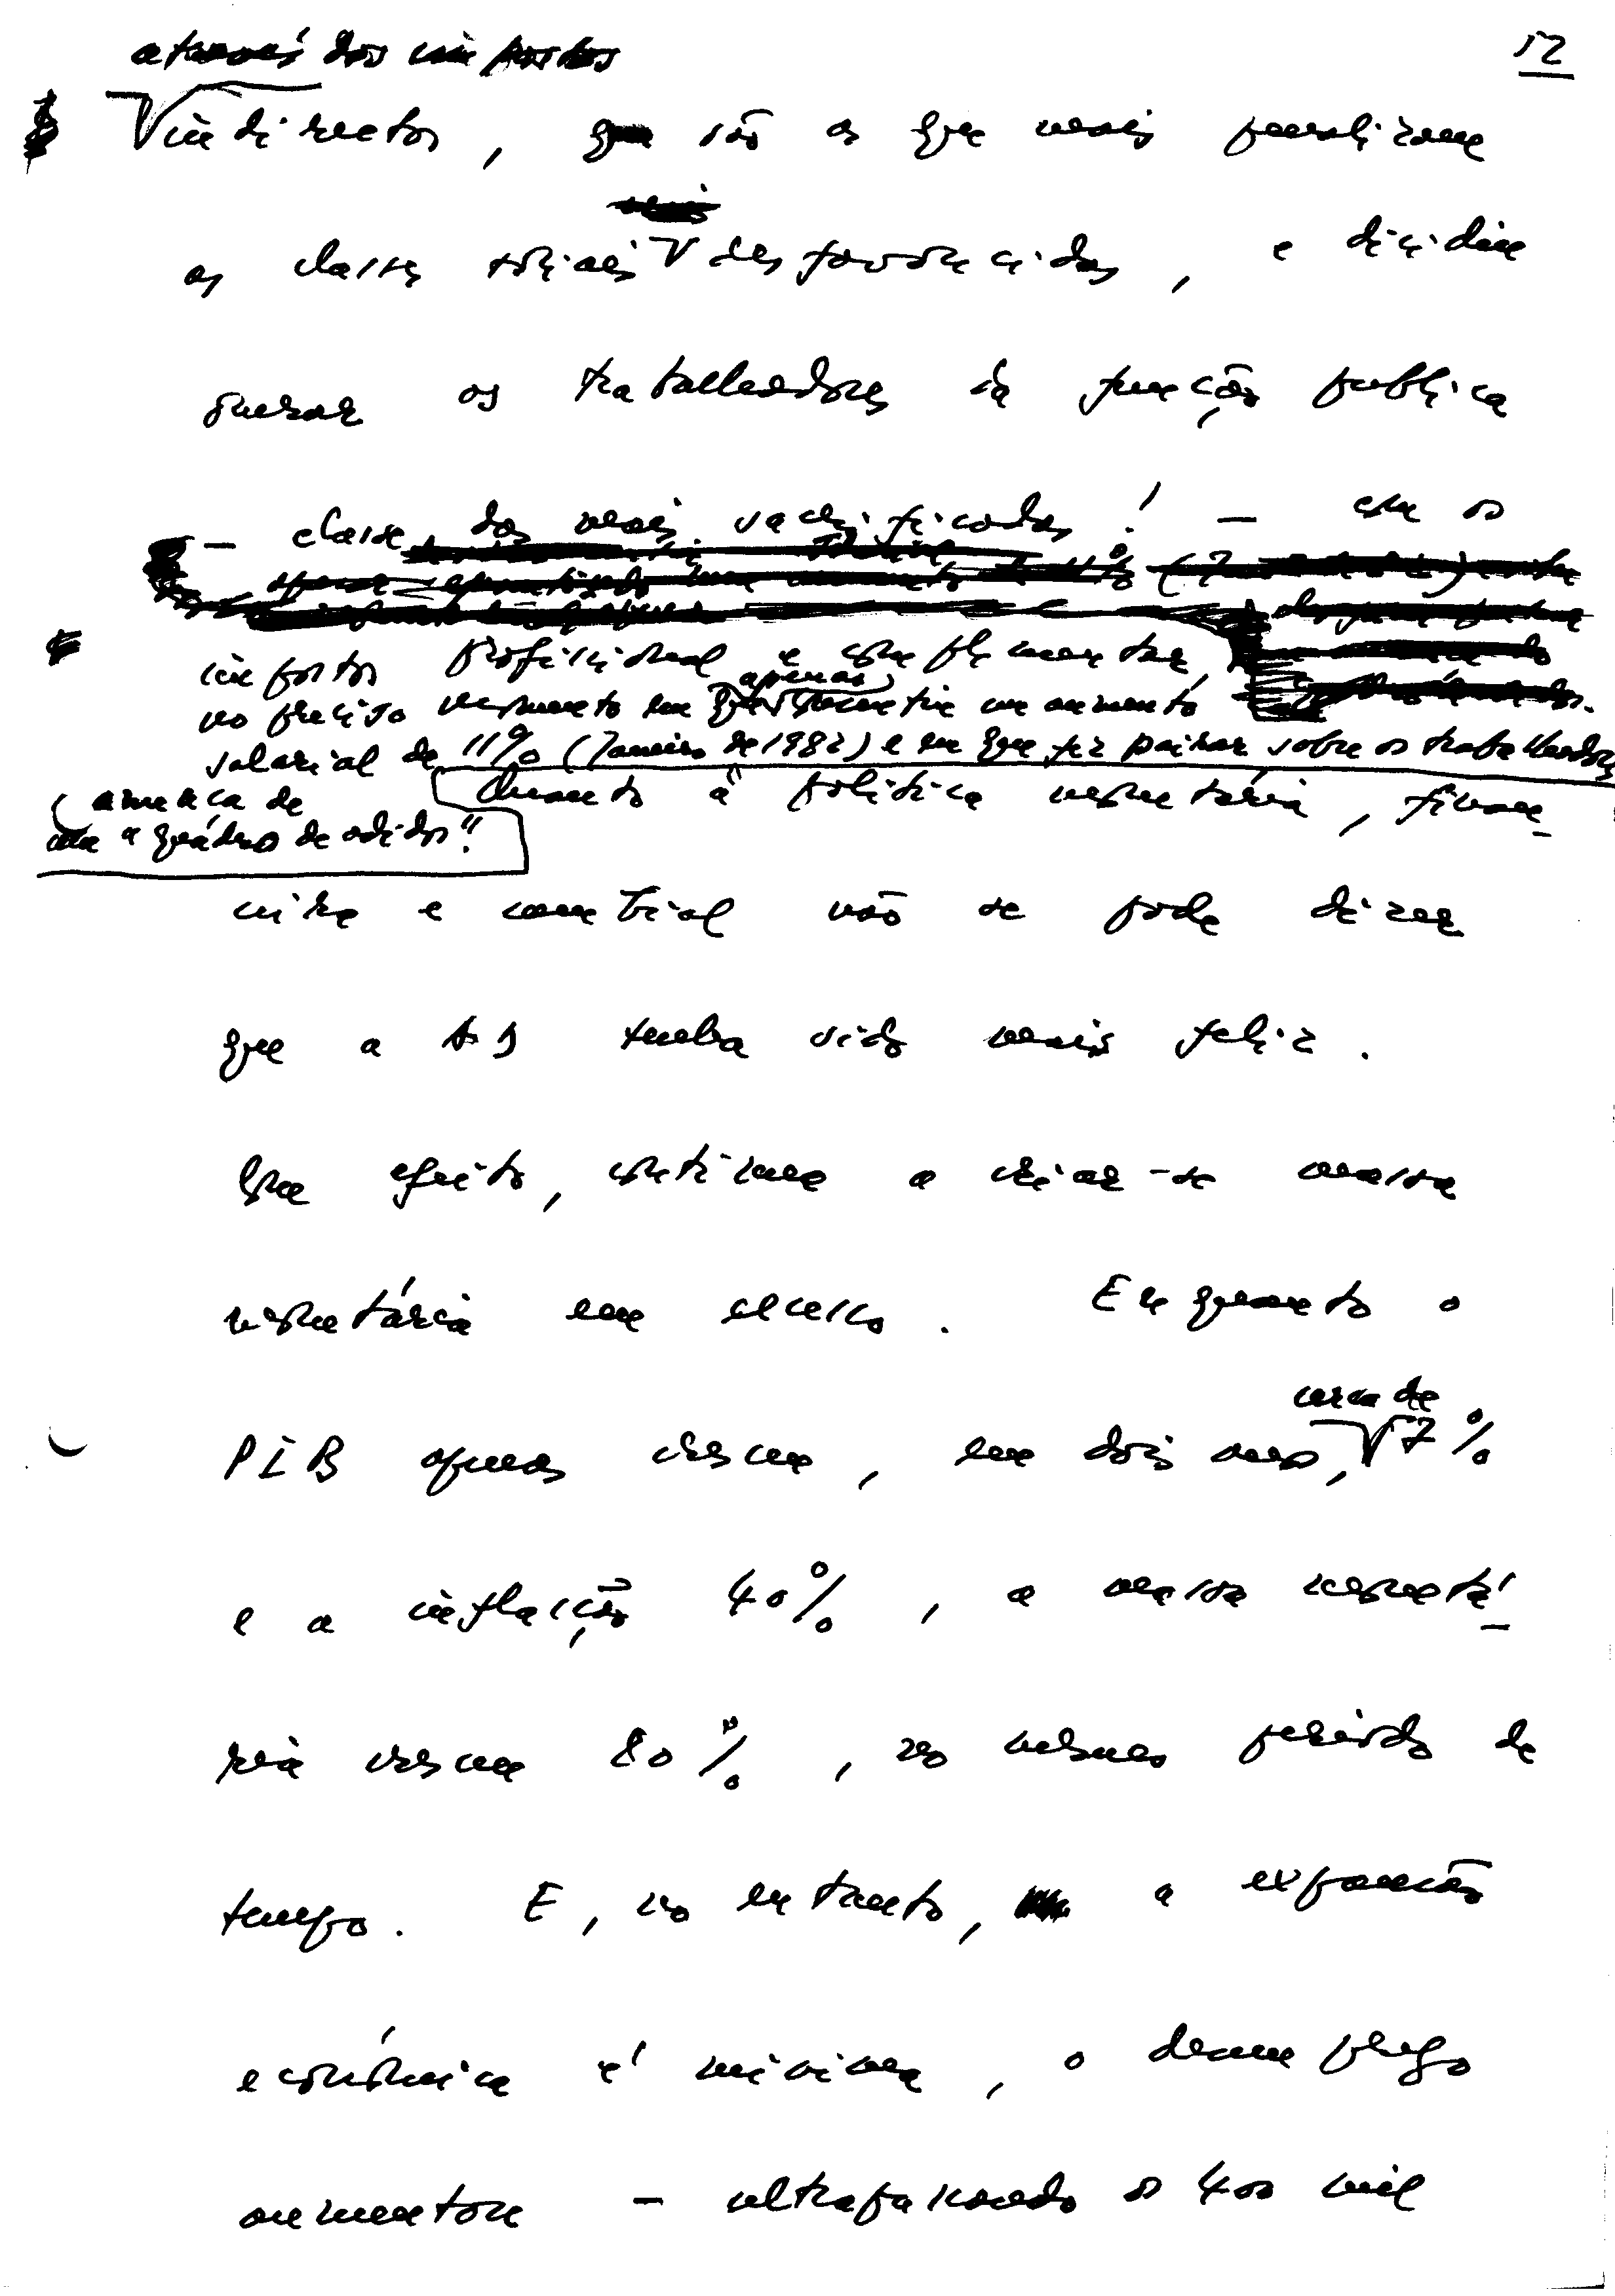 12
através dos impostos
indirectos, que são os que mais penalizam
as classes sociais desfavorecidas, e decidiu
onerar os trabalhadores da função publica
— classe das mais sacrificadas! — com os
impostos profissional e complementar,
no preciso momento em que apenas garantiu um aumento
salarial de 11% (Janeiro de 1982) e em que fez pairar sobre os trabalhadores
a ameaça de
"quadro de adidos".
Quanto à politica monetária, finan-
ceira e cambial não se pode dizer
que a AD tenha sido mais feliz.
Com efeito, continua a criar-se massa
monetária em excesso. Enquanto o
PIB apenas cresceu, em dois anos, cerca de 7%
e a inflação 40%, a massa monetá-
ria cresceu 80%, no mesmo período de
tempo. E, no entanto, a expansão
económica é minima, o desemprego
aumentou — ultrapassando os 400 mil